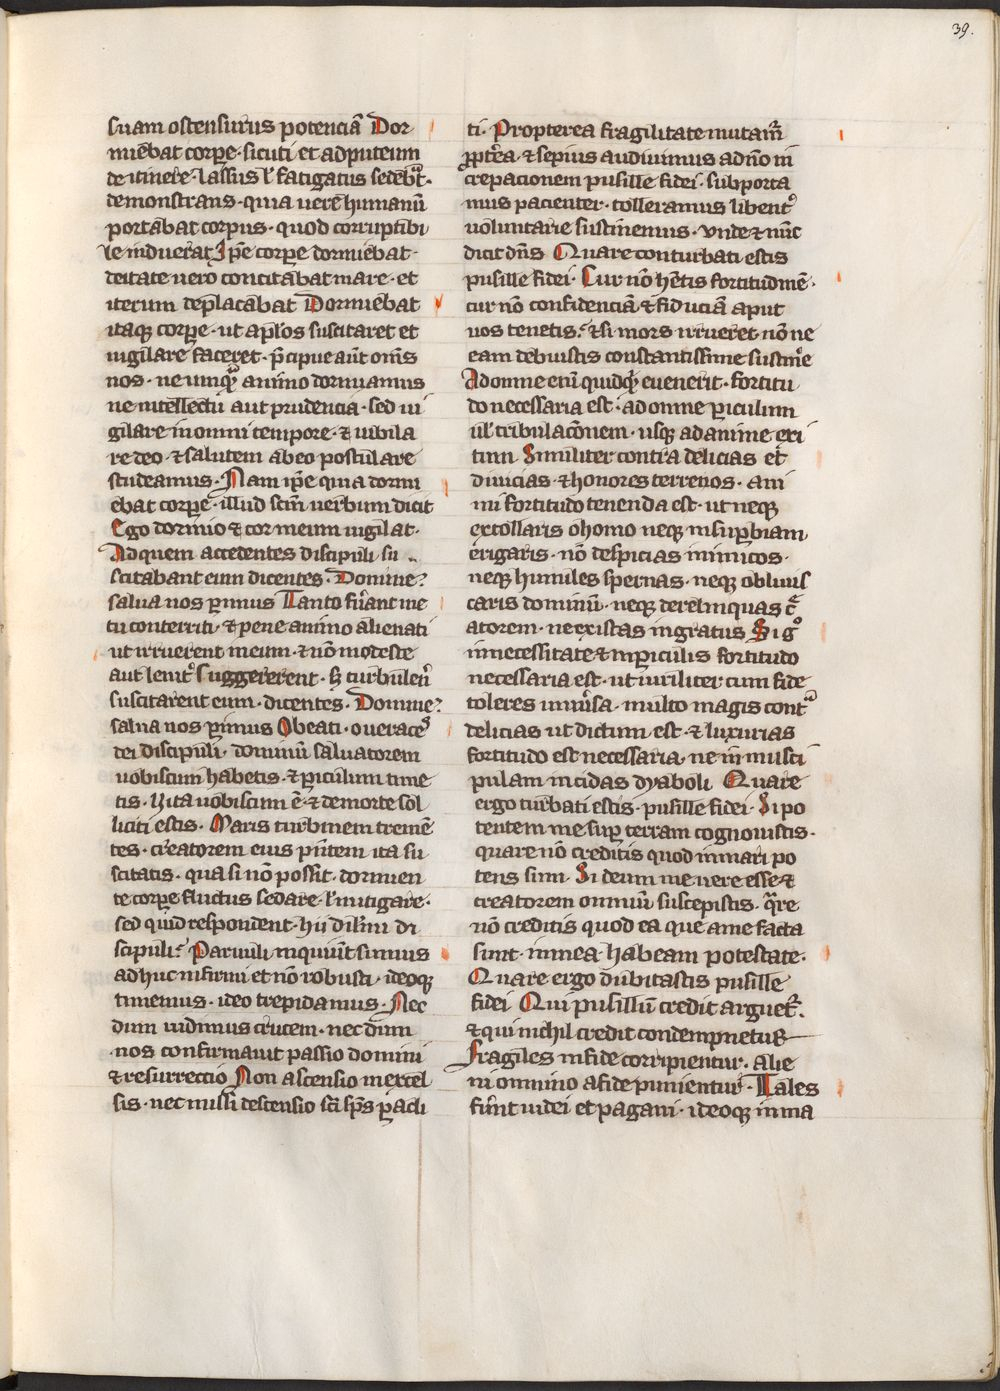 39.
suam ostensurus potenciā Dor
miebat corpe · sicuti et ad puteum
de itinere · lassus ł fatigatus sedebat ·
demonstrans · quia uere humanū
portabat corpus · quod corruptibi
le induerat Ipe corpe dormiebat ·
deitate uero concitabat mare · et
iterum deplacabat Dormiebat
itaq; corpe · ut aplos suscitaret et
uigilare faceret · pcipue aut oms
nos · ne umquā animo dormiamus
ne intellectu aut prudencia · sed ui
gilare in omni tempore · & iubila
re deo · & salutem ab eo postulare
studeamus · Nam ipe quia dormi
ebat corpe · illud scm uerbum dicit
Ego dormio & cor meum uigilat ·
Ad quem accedentes discipuli su
scitabant eum dicentes · Domine
salua nos perimus Tanto fuant me
tu conterriti · & pene animo alienati
ut irruerent in eum · & nō modeste
aut lenit suggererent · s; turbulent
suscitarent eum · dicentes · Domine
salua nos perimus O beati · o ueraces
dei discipuli · dominū saluatorem
uobiscum habetis · & periculum time
tis · Vita uobiscum ē · & de morte sol
liciti estis · Maris turbinem tremē
tes · creatorem eius pntem ita su
scitatis · quasi nō possit · dormien
te corpe fluctus sedare · ł mitigare ·
sed quid respondent · hii dilecti di
scipuli · Paruuli inquiunt sumus
adhuc infirmi et nō robusti · ideoq;
timemus · ideo trepidamus · Nec
dum uidimus crucem · nec dum
nos confirmauit passio domini
& resurrectio Non ascensio in excel
sis · nec missi descensio sci sps paracli
ti · Propterea fragilitate mutam
ppterea & sepius audiuimus ad nō in
crepacionem pusille fidei · subporta
mus pacienter · tolleramus libent
uoluntarie sustinemus · Vnde & nūc
dicit dns Quare conturbati estis
pusille fidei · Cur nō habetis fortitudinē ·
cur nō confidenciā & fiduciā aput
uos tenetis · & si mors irrueret nō ne
eam debuistis constantissime sustine
Ad omne eni quidquid euenerit · fortitu
do necessaria est · ad omne periculum
ul tribulacōnem · usq; ad anime exi
tum · Similiter contra delicias et
diuicias · & honores terrenos · ani
mi fortitudo tenenda est · ut neq;
extollaris o homo neq; in superbiam
erigaris · nō despicias inimicos ·
neq; humiles spernas · neq; obliuis
caris dominū · neq; derelinquas cre
atorem · ne existas ingratus Si g
in necessitate & in periculis fortitudo
necessaria est · ut uiriliter cum fide
toleres inmissa · multo magis contra
delicias ut dictum est · & luxurias
fortitudo est necessaria · ne in musci
pulam incidas dyaboli Quare
ergo turbati estis · pusille fidei · Si po
tentem me super terram cognouistis ·
quare nō creditis quod in mari po
tens sum · Si deum me uere esse &
creatorem omniū suscepistis · qare
nō creditis quod ea que a me facta
sunt · in mea habeam potestate ·
Quare ergo dubitastis pusille
fidei Qui pusillū credit arguet ·
& qui nichil credit condempnetur
Fragiles in fide corripientur · Alie
ni omnino a fide punientur · Tales
sunt iudei et pagani · ideoq; in ma